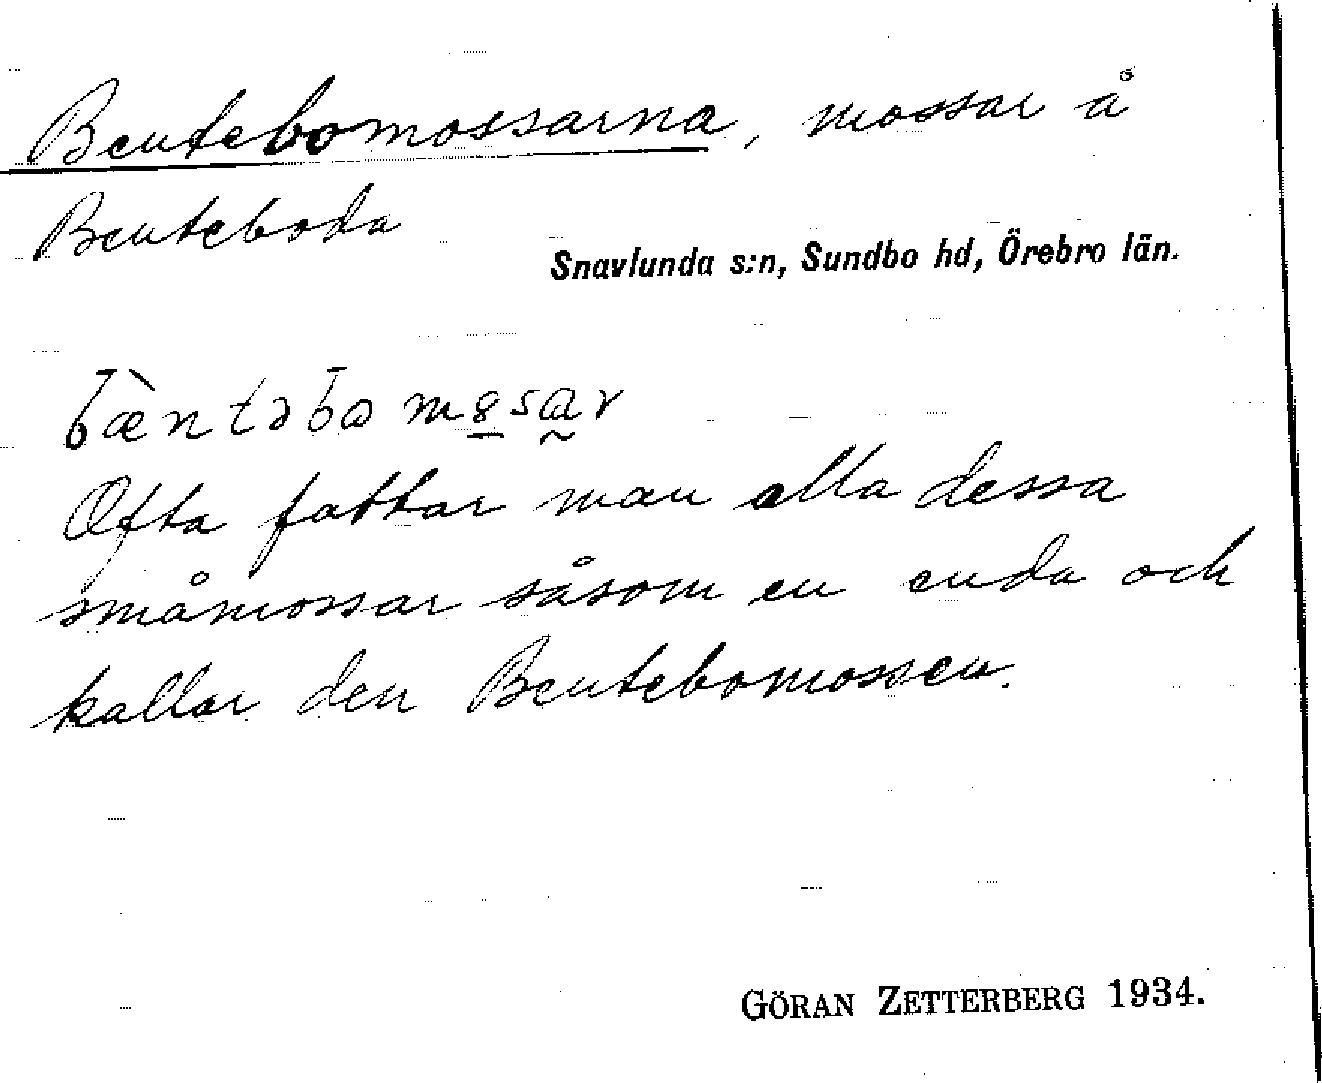 Bentebomossarna, mossar å
Benteboda
Snavlunda s:n, Sundbo hd, Örebro län.
bæ̀ntəbomosar
Ofta fattar man alla dessa
småmossar såsom en enda och
kallar den Bentebomossen.
GÖRAN ZETTERBERG 1934.